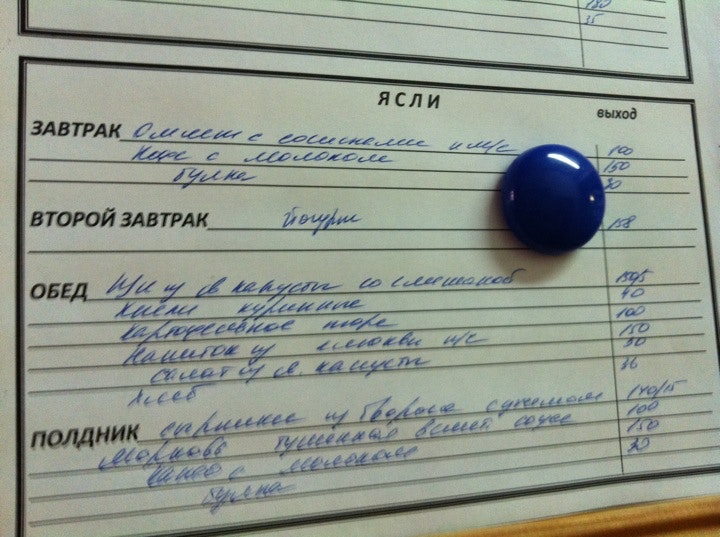 180
15
ЯСЛИ
выход
ЗАВТРАК Омлет с сосисками и м/с 100
Кофе с молоком 150
Булка 30
ВТОРОЙ ЗАВТРАК Йогурт 158
ОБЕД Щи из св капусты со сметаной 150/5
куриные 40
картофельное пюре 100
Напиток из клюквы п/с 150
салат из св. капусты 30
Хлеб 36
ПОЛДНИК сырники из творога с джемом 140/15
Морковь тушенная в смет. соусе 100
Какао с молоком 150
Булка 30